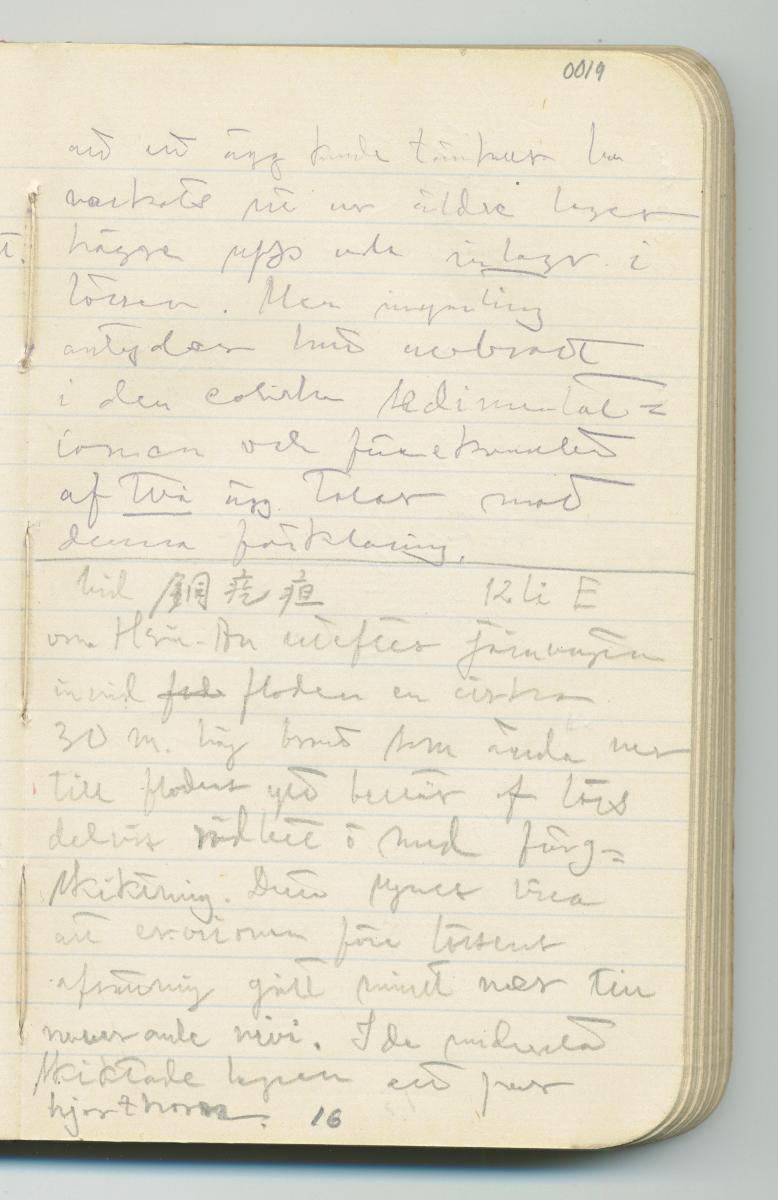 0019
att ett ägg kunde tänkas ha
vaskats ut ur äldre lager
högre upp och inlagr. i
lössen. Men ingenting
antyder hittat
i den eoliska sedimentat=
ionen och förekomsten
af två ägg talar mot
denna förklaring.
Vid 銅疙疸 12 li E
om Hsin-An utefter järnvägen
invid floden en cirka
30 m. hög brant som ända ner
till flodens yta består af löss
delvis rödlätt o med färg=
skiktning. Detta synes visa
att erosionen före lössens
afsättning gått minst ner till
nuvarande nivå. I de understa
skiktade lagren ett par
hjorthorn. 16